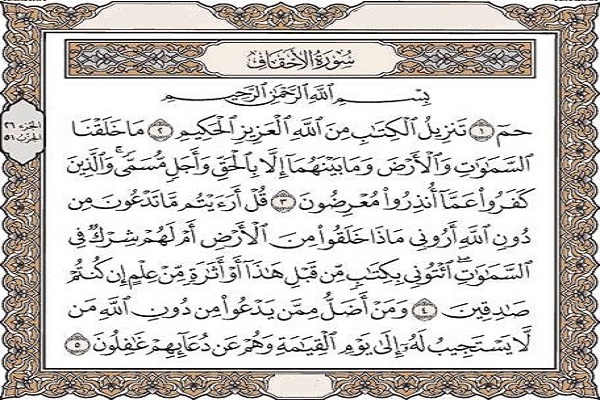 سُورَةُ الأَحْقَاف
بِسْمِ ٱللَّهِ ٱلرَّحْمَٰنِ ٱلرَّحِيمِ
الجزء ٢٦
الحزب ٥١
حمٓ ١ تَنزِيلُ ٱلْكِتَٰبِ مِنَ ٱللَّهِ ٱلْعَزِيزِ ٱلْحَكِيمِ ٢ مَا خَلَقْنَا
ٱلسَّمَٰوَٰتِ وَٱلْأَرْضَ وَمَا بَيْنَهُمَآ إِلَّا بِٱلْحَقِّ وَأَجَلٍ مُّسَمًّى ۚ وَٱلَّذِينَ
كَفَرُوا۟ عَمَّآ أُنذِرُوا۟ مُعْرِضُونَ ٣ قُلْ أَرَءَيْتُم مَّا تَدْعُونَ مِن
دُونِ ٱللَّهِ أَرُونِى مَاذَا خَلَقُوا۟ مِنَ ٱلْأَرْضِ أَمْ لَهُمْ شِرْكٌ فِى
ٱلسَّمَٰوَٰتِ ۖ ٱئْتُونِى بِكِتَٰبٍ مِّن قَبْلِ هَٰذَآ أَوْ أَثَٰرَةٍ مِّنْ عِلْمٍ إِن كُنتُمْ
صَٰدِقِينَ ٤ وَمَنْ أَضَلُّ مِمَّن يَدْعُوا۟ مِن دُونِ ٱللَّهِ مَن
لَّا يَسْتَجِيبُ لَهُۥٓ إِلَىٰ يَوْمِ ٱلْقِيَٰمَةِ وَهُمْ عَن دُعَآئِهِمْ غَٰفِلُونَ ٥